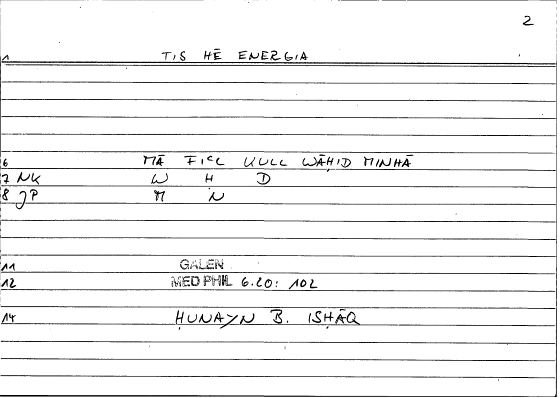 2
1 TIS HĒ ENERGIA
6 MĀ FIᶜL KULL WĀḤID MINHĀ
7 NK W H D
8 JP M N
11 GALEN
12 MED PHIL 6.20: 102
14 ḤUNAYN B. ISḤĀQ